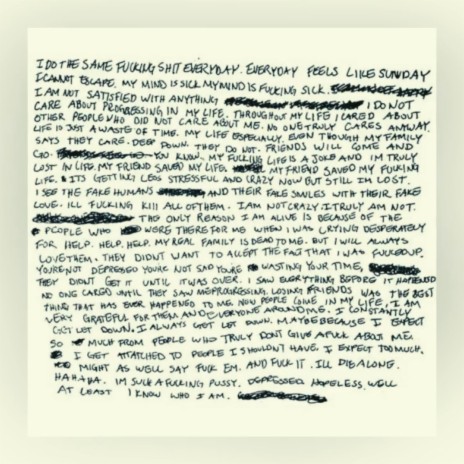 I DO THE SAME FUCKING SHIT EVERYDAY. EVERYDAY FEELS LIKE SUNDAY
I CANNOT ESCAPE. MY MIND IS SICK. MY MIND IS FUCKING SICK.
I AM NOT SATISFIED WITH ANYTHING I DO NOT
CARE ABOUT PROGRESSING IN MY LIFE. THROUGHOUT MY LIFE I CARED ABOUT
OTHER PEOPLE WHO DID NOT CARE ABOUT ME. NO ONE TRULY CARES ANYWAY.
LIFE IS JUST A WASTE OF TIME. MY LIFE ESPECIALLY. EVEN THOUGH MY FAMILY
SAYS THEY CARE. DEEP DOWN. THEY DO NOT. FRIENDS WILL COME AND
GO. YOU KNOW. MY FUCKING LIFE IS A JOKE AND IM TRULY
LOST IN LIFE. MY FRIEND SAVED MY LIFE. MY FRIEND SAVED MY FUCKING
LIFE. & ITS GETTING LESS STRESSFUL AND CRAZY NOW BUT STILL IM LOST.
I SEE THE FAKE HUMANS AND THEIR FAKE SMILES WITH THEIR FAKE
LOVE. ILL FUCKING KILL ALL OF THEM. I AM NOT CRAZY. I TRULY AM NOT.
THE ONLY REASON I AM ALIVE IS BECAUSE OF THE
PEOPLE WHO WERE THERE FOR ME WHEN I WAS CRYING DESPERATELY
FOR HELP. HELP. HELP. MY REAL FAMILY IS DEAD TO ME. BUT I WILL ALWAYS
LOVE THEM. THEY DIDNT WANT TO ACCEPT THE FACT THAT I WAS FUCKED UP.
YOURE NOT DEPRESSED YOURE NOT SAD YOURE WASTING YOUR TIME.
THEY DIDNT GET IT UNTIL IT WAS OVER. I SAW EVERYTHING BEFORE IT HAPPENED
NO ONE CARED UNTIL THEY SAW ME PROGRESSING. LOSING FRIENDS WAS THE BEST
THING THAT HAS EVER HAPPENED TO ME. NOW PEOPLE COME IN MY LIFE. I AM
VERY GRATEFUL FOR THEM AND EVERYONE AROUND ME. I CONSTANTLY
GET LET DOWN. I ALWAYS GET LET DOWN. MAYBE BECAUSE I EXPECT
SO MUCH FROM PEOPLE WHO TRULY DONT GIVE A FUCK ABOUT ME.
I GET ATTATCHED TO PEOPLE I SHOULDNT HAVE. I EXPECT TOO MUCH.
MIGHT AS WELL SAY FUCK EM. AND FUCK IT. ILL DIE ALONE.
HAHAHA. IM SUCH A FUCKING PUSSY. DEPRESSED. HOPELESS. WELL
AT LEAST I KNOW WHO I AM.